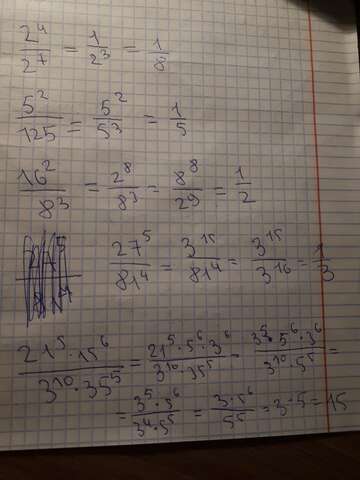 2⁴/2⁷ = 1/2³ = 1/8
5²/125 = 5²/5³ = 1/5
16²/8³ = 2⁸/8³ = 8⁸/29 = 1/2
27⁵/81⁴ = 3¹⁵/81⁴ = 3¹⁵/3¹⁶ = 1/3
21⁵·15⁶/3¹⁰·35⁵ = 21⁵·5⁶·3⁶/3¹⁰·35⁵ = 3⁵·5⁶·3⁶/3¹⁰·5⁵ =
= 3⁵·5⁶/3⁴·5⁵ = 3·5⁶/5⁵ = 3·5 = 15